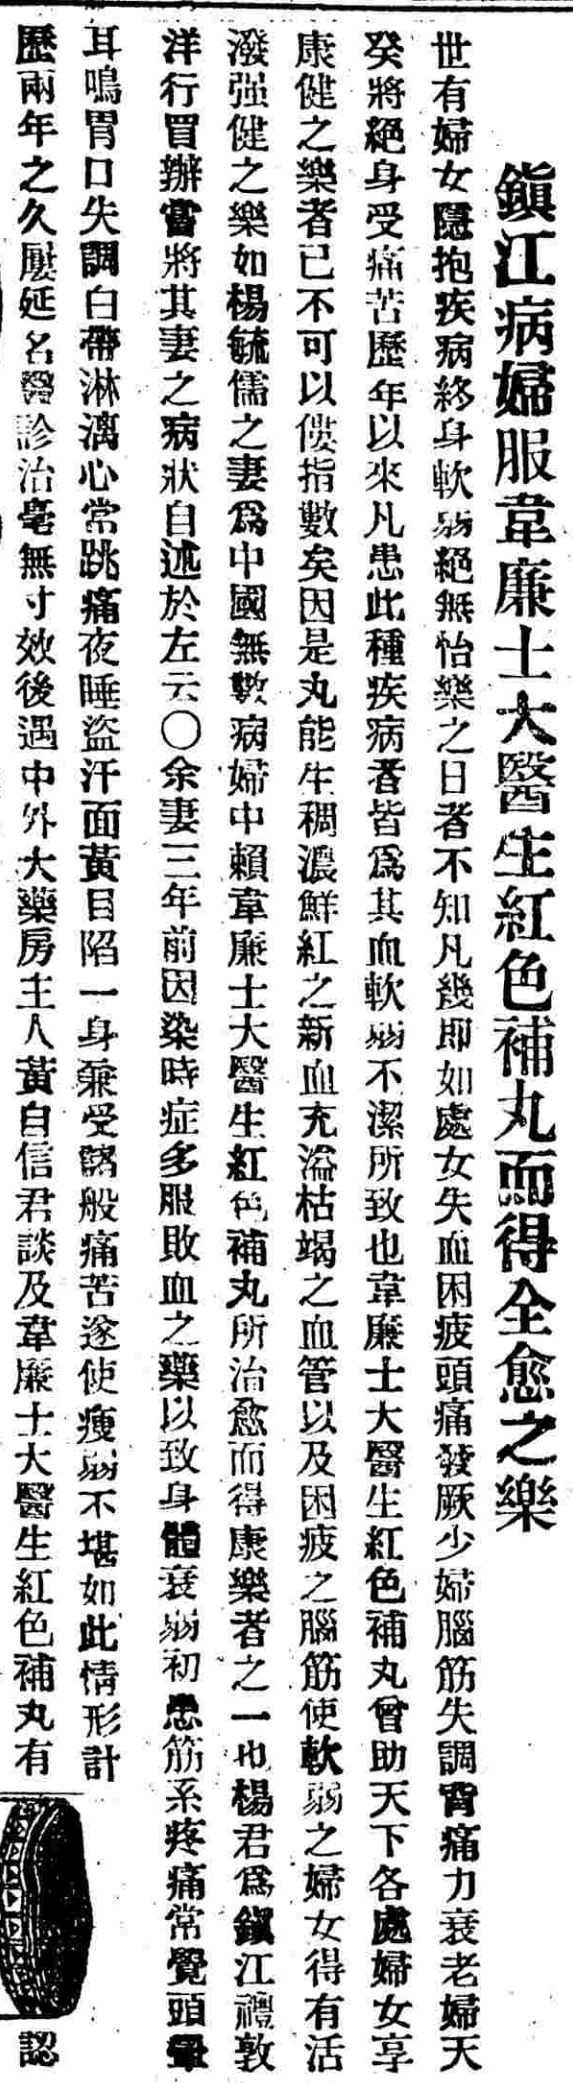 鎭江病婦服韋廉士大醫生紅色補丸而得全愈之樂
世有婦女隱抱疾病終身軟弱絕無怡樂之日者不知凡幾即如處女失血困疲頭痛發厥少婦腦筋失調背痛力衰老婦天
癸將絕身受痛苦歷年以來凡患此種疾病者皆爲其血軟弱不潔所致也韋廉士大醫生紅色補丸曾助天下各處婦女享
康健之樂者已不可以僂指數矣因是丸能生稠濃鮮紅之新血充溢枯竭之血管以及困疲之腦筋使軟弱之婦女得有活
潑强健之樂如楊毓儒之妻爲中國無數病婦中賴韋廉士大醫生紅色補丸所治愈而得康樂者之一也楊君爲鎭江禮敦
洋行買辦當將其妻之病狀自述於左云〇余妻三年前因染時症多服敗血之藥以致身體衰弱初患筋系疼痛常覺頭暈
耳鳴胃口失調白帶淋漓心常跳痛夜睡盜汗面黃目陷一身兼受諸般痛苦遂使瘦弱不堪如此情形計
歷兩年之久屢延名醫診治毫無寸效後遇中外大藥房主人黃自信君談及韋廉士大醫生紅色補丸有
認